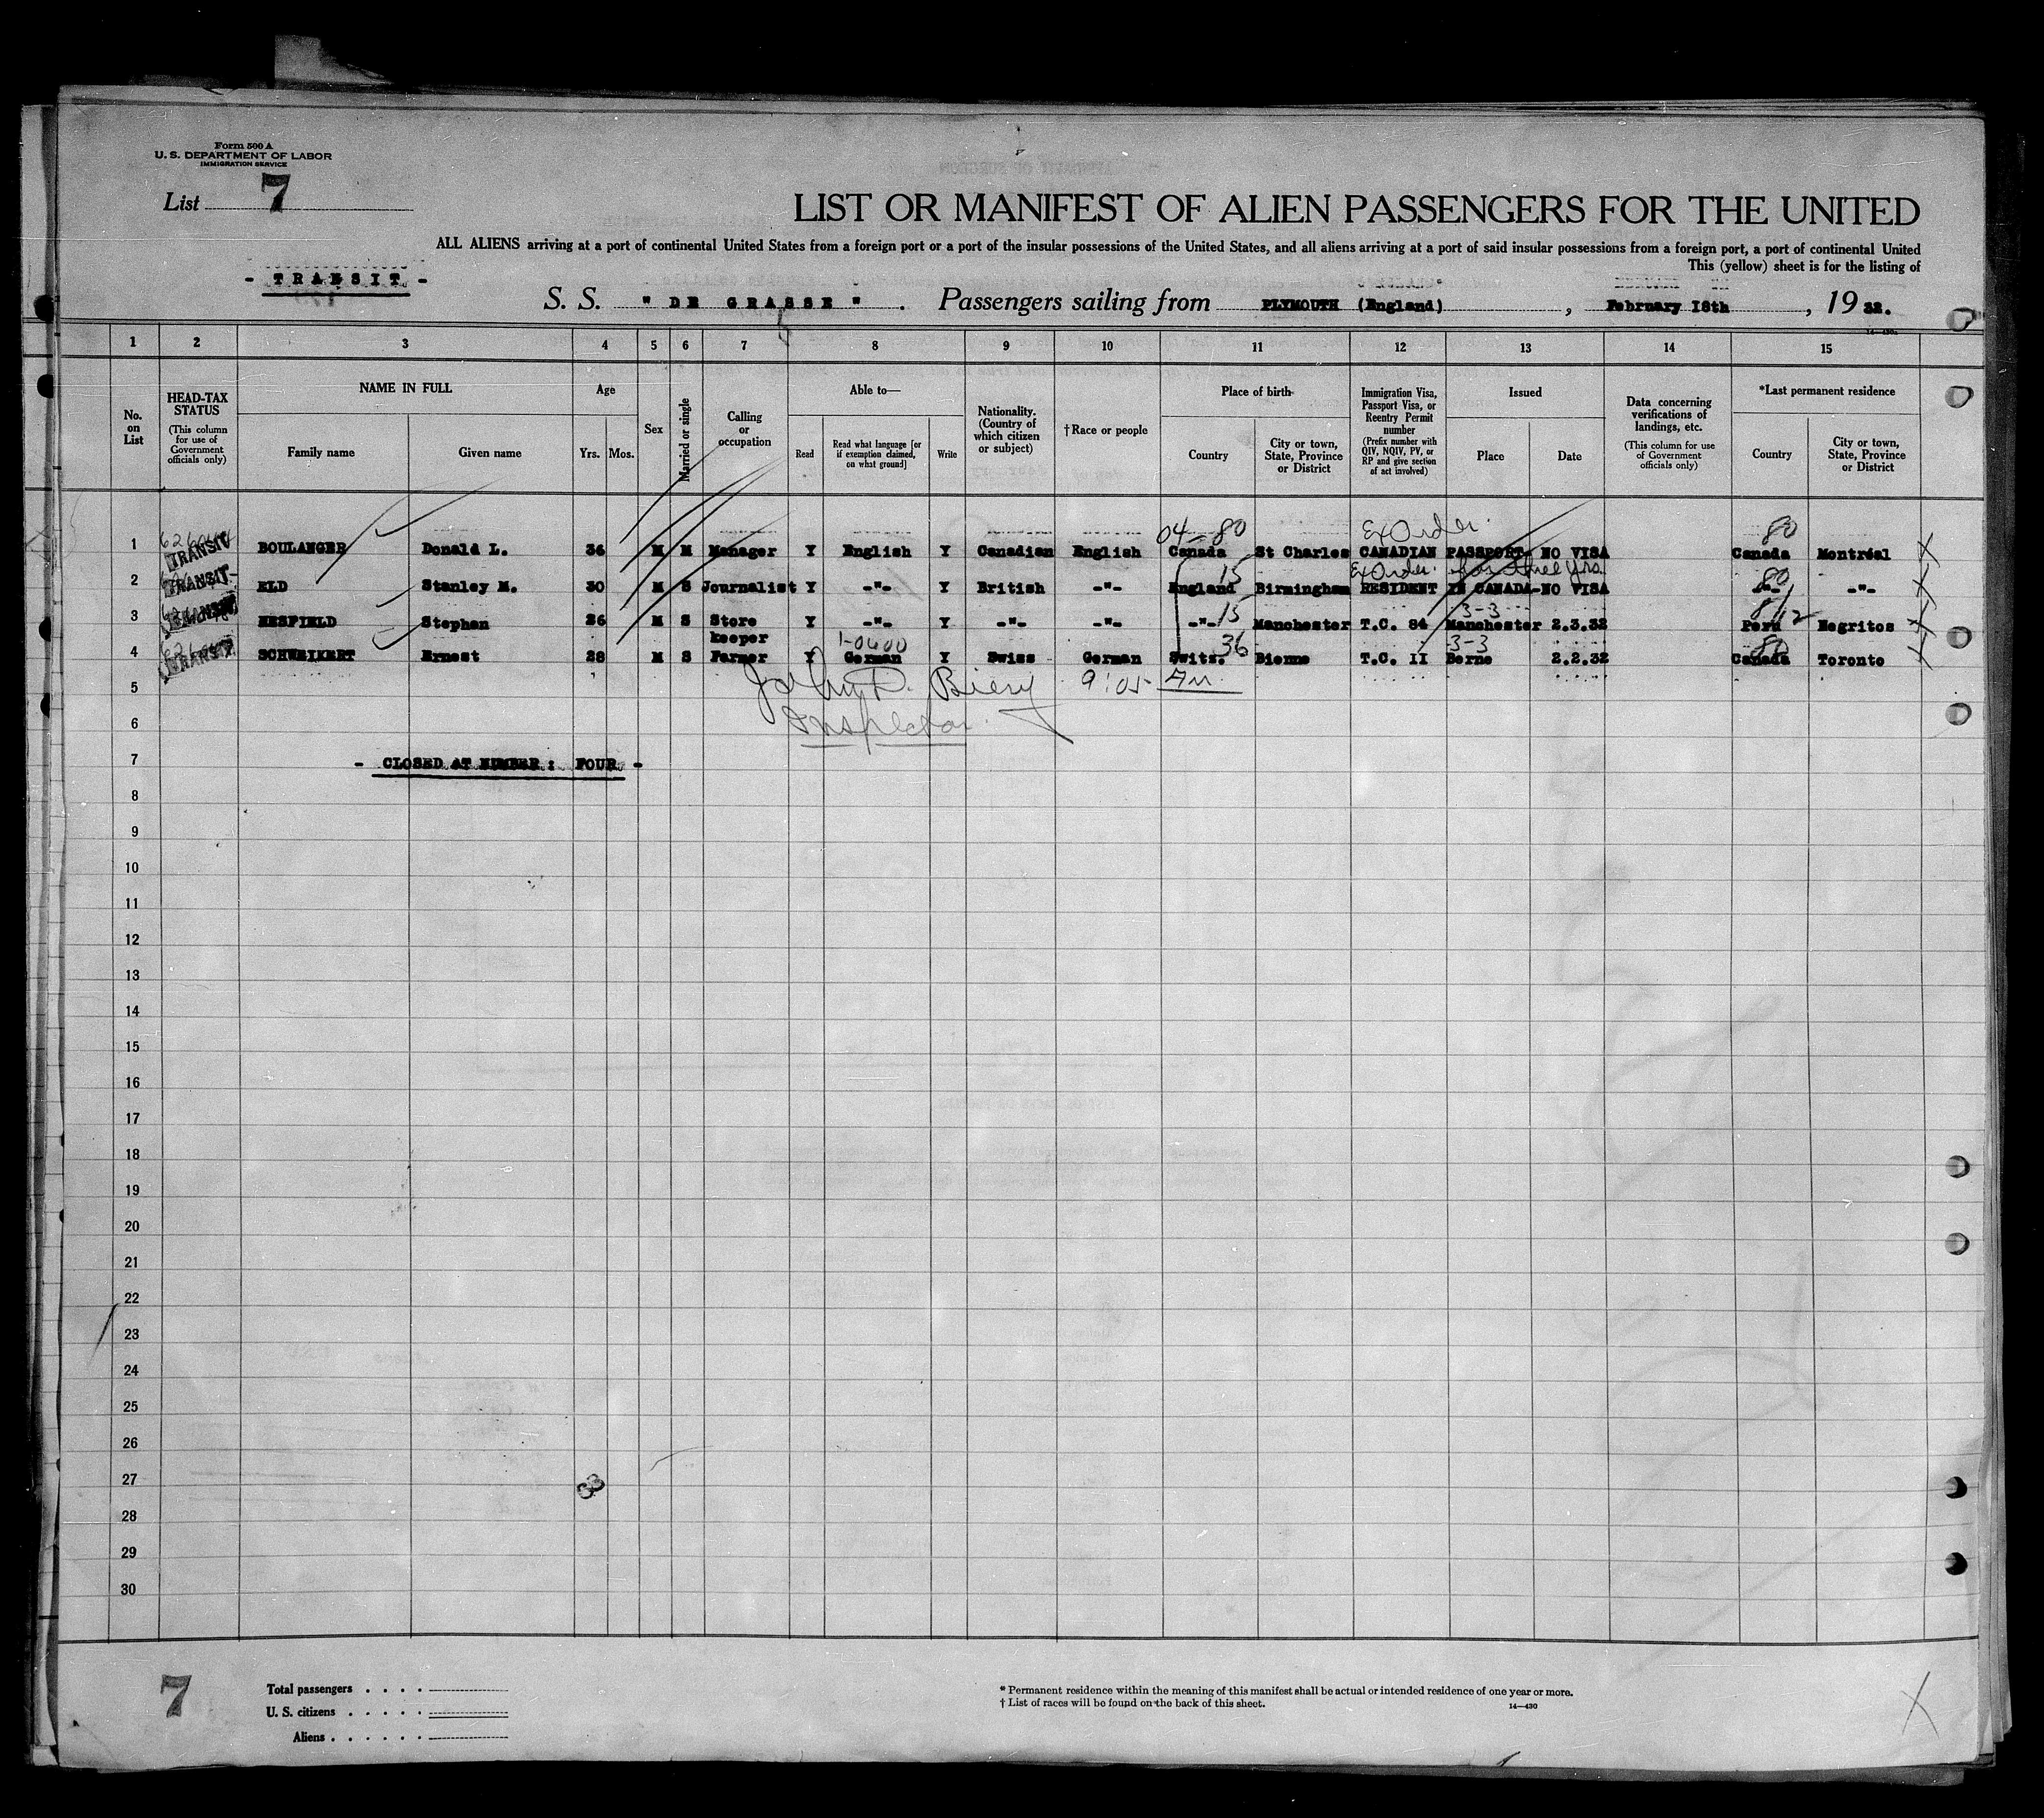 Form 500 A
U. S. DEPARTMENT OF LABOR
IMMIGRATION SERVICE
List 7
LIST OR MANIFEST OF ALIEN PASSENGERS FOR THE UNITED
ALL ALIENS arriving at a port of continental United States from a foreign port or a port of the insular possessions of the United States, and all aliens arriving at a port of said insular possessions from a foreign port, a port of continental United
This (yellow) sheet is for the listing of
- TRANSIT -
S. S. " DE GRASSE " . Passengers sailing from PLYMOUTH (England) , February 18th , 19 32.
14—430
1 2 3 4 5 6 7 8 9 10 11 12 13 14 15
No. on List
HEAD-TAX STATUS
(This column for use of Government officials only)
NAME IN FULL
Family name Given name
Age
Yrs. Mos.
Sex
Married or single
Calling or occupation
Able to—
Read
Read what language [or if exemption claimed, on what ground]
Write
Nationality. (Country of which citizen or subject)
†Race or people
Place of birth
Country
City or town, State, Province or District
Immigration Visa, Passport Visa, or Reentry Permit number
(Prefix number with QIV, NQIV, PV, or RP and give section of act involved)
Issued
Place Date
Data concerning verifications of landings, etc.
(This column for use of Government officials only)
*Last permanent residence
Country
City or town, State, Province or District
04-80 Ex Order. 80
1 TRANSIT BOULANGER Donald L. 36 M M Manager Y English Y Canadian English Canada St Charles CANADIAN PASSPORT- NO VISA Canada Montréal X
15 Ex Order. yrs. 80
2 TRANSIT ELD Stanley M. 30 M S Journalist Y -"- Y British -"- England Birmingham RESIDENT IN CANADA-NO VISA -"- -"- X
15 3-3
3 TRANSIT HESFIELD Stephen 26 M S Store keeper Y -"- Y -"- -"- -"- Manchester T.C. 84 Manchester 2.3.32 Peru Negritos X
1-0600 36 3-3 80
4 TRANSIT SCHWEIKERT Ernest 28 M S Farmer Y German Y Swiss German Switz. Bienne T.C. II Berne 2.2.32 Canada Toronto X
5 Biery 9:05 Am
6 Inspector.
7 - CLOSED AT NUMBER : FOUR -
8
9
10
11
12
13
14
15
16
17
18
19
20
21
22
23
24
25
26
27
28
29
30
7
Total passengers . . . .
U. S. citizens . . . . .
Aliens . . . . . .
* Permanent residence within the meaning of this manifest shall be actual or intended residence of one year or more.
† List of races will be found on the back of this sheet.
14—430
X